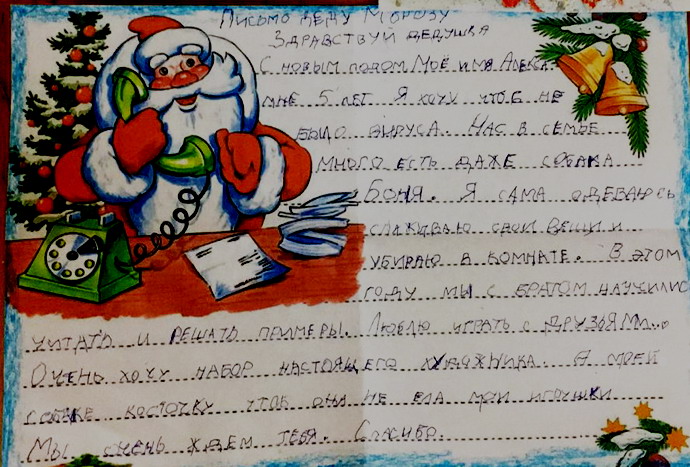 Письмо Деду Морозу
Здравствуй дедушка
С новым годом Моё имя Алекса.
мне 5 лет. Я хочу чтоб не
было вируса. Нас в семье
много есть даже собака
Боня. Я сама одеваюсь
складываю свои вещи и
убираю в комнате. В этом
году мы с братом научилис
читать и решать примеры. Люблю играть с друзьями...
Очень хочу набор настоящего художника. А моей
собаке косточку чтоб она не ела мои игрушки
Мы очень ждем тебя. Спасибо.